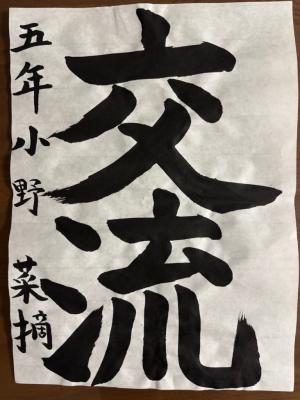 交流
五年小野菜摘